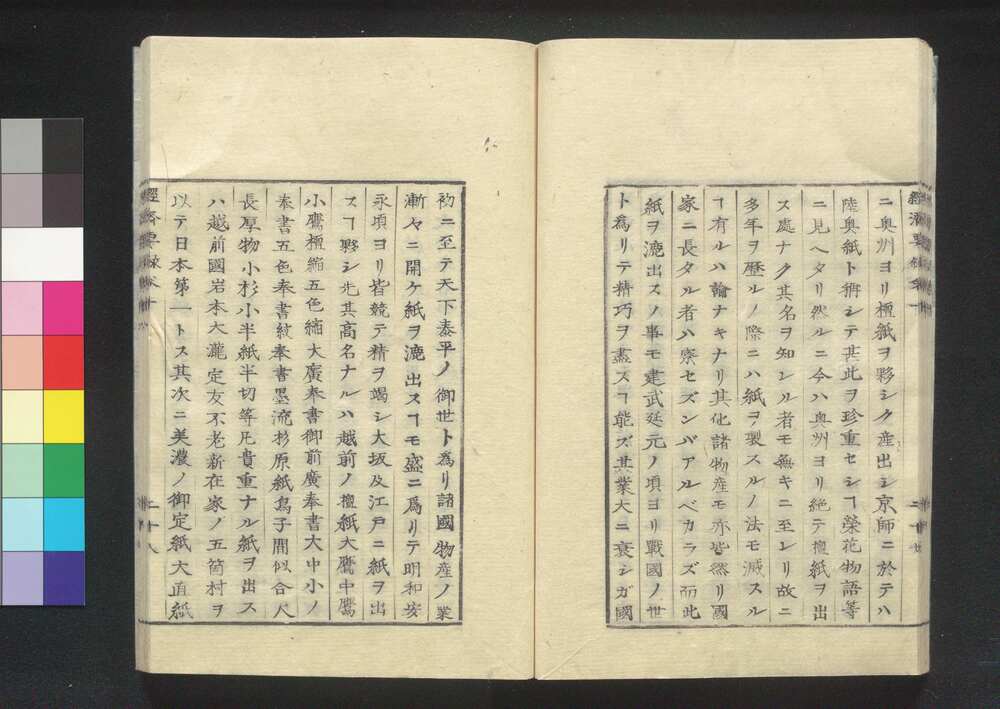 ニ奥州ヨリ檀紙ヲ夥シク産出シ京師ニ於テハ
陸奥紙ト稱シテ甚此ヲ珍重セシヿ榮花物語等
ニ見ヘタリ然ルニ今ハ奥州ヨリ絶テ檀紙ヲ出
ス處ナク其名ヲ知レル者モ無キニ至レリ故ニ
多年ヲ歴ルノ際ニハ紙ヲ製スルノ法モ滅スル
ヿ有ルハ論ナキナリ其他諸物産モ亦皆然リ國
家ニ長タル者ハ察セズンバアルベカラズ而此
紙ヲ漉出スノ事モ建武延元ノ頃ヨリ戰國ノ世
ト為リテ精巧ヲ盡スヿ能ズ其業大ニ衰シガ國
初ニ至テ天下泰平ノ御世ト為リ諸國物産ノ業
漸々ニ開ケ紙ヲ漉出スヿモ盛ニ為リテ明和安
永頃ヨリ皆競テ精ヲ竭シ大坂及江戸ニ紙ヲ出
スヿ夥シ先其高名ナルハ越前ノ檀紙大鷹中鷹
小鷹檀縮五色縮大廣奉書御前廣奉書大中小ノ
奉書五色奉書紋奉書墨流杉原紙鳥子間似合尺
長厚物小杉小半紙半切等凡貴重ナル紙ヲ出ス
ハ越前國岩本大瀧定友不老新在家ノ五箇村ヲ
以テ日本第一トス其次ニ美濃ノ御定紙大直紙